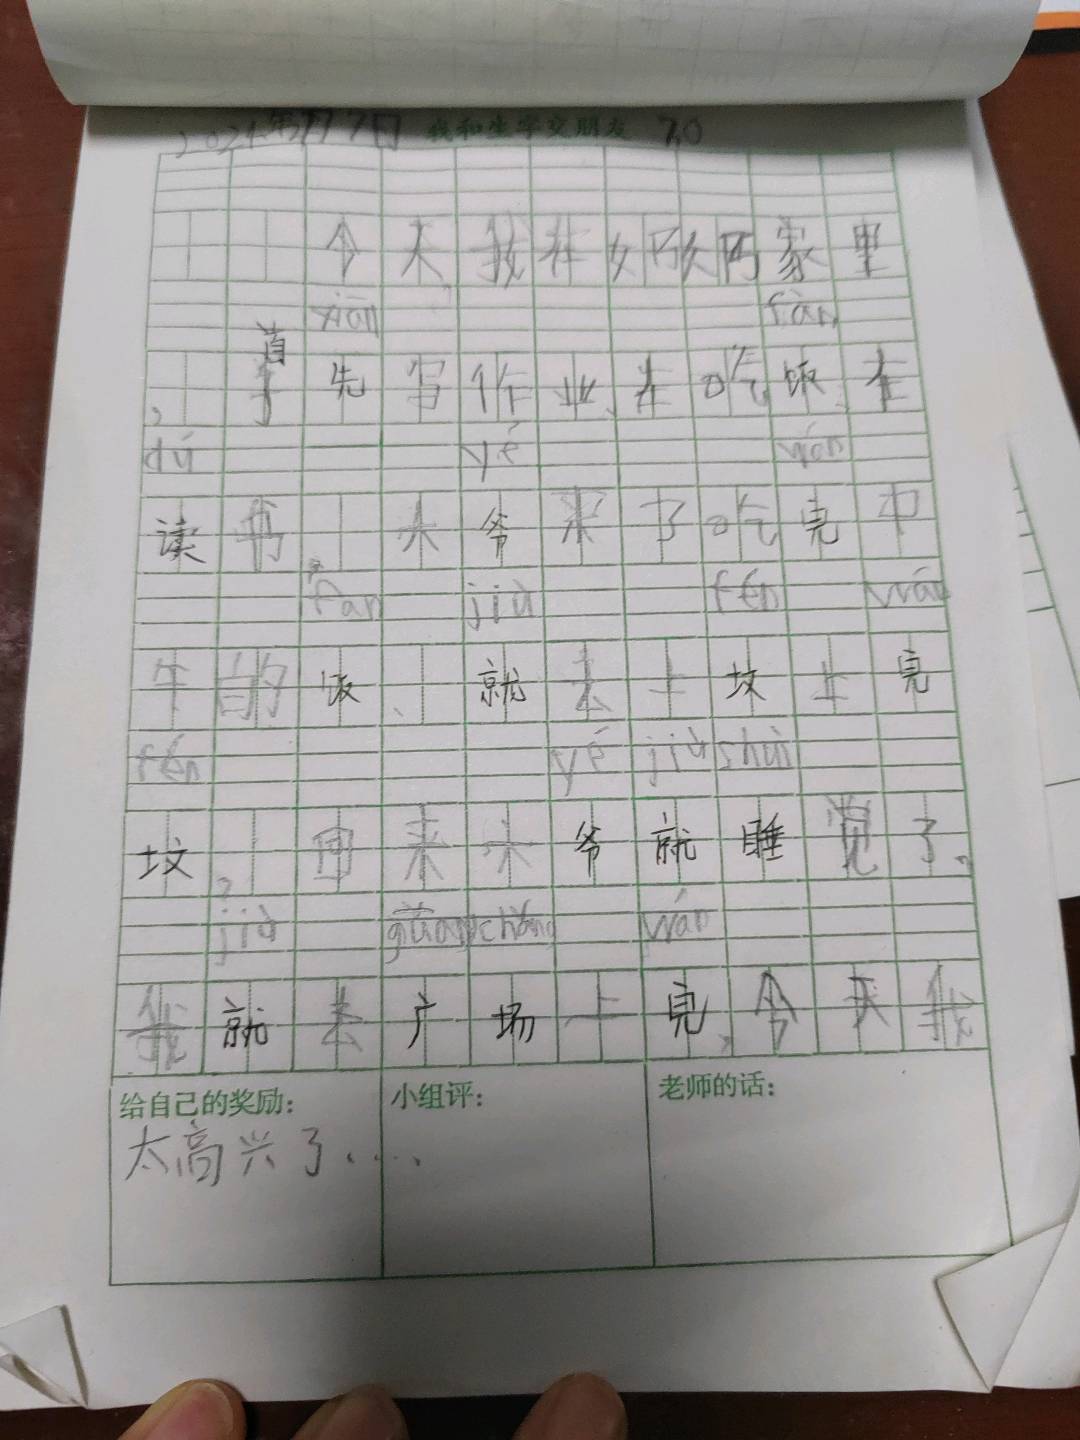 2021年7月7日 我和生字交朋友 70
今天我在婀婀家里
xiān fàn
，首先写作业、在吃饭、在
dú yé wán
读书、大爷来了吃完中
fan jiù fén wán
午的饭、就去上坟上完
fén yé jiù shuì
坟，回来大爷就睡觉了、
jiù guǎng chǎng wán
我就去广场上完、今天我
给自己的奖励：
太高兴了....
小组评：
老师的话：